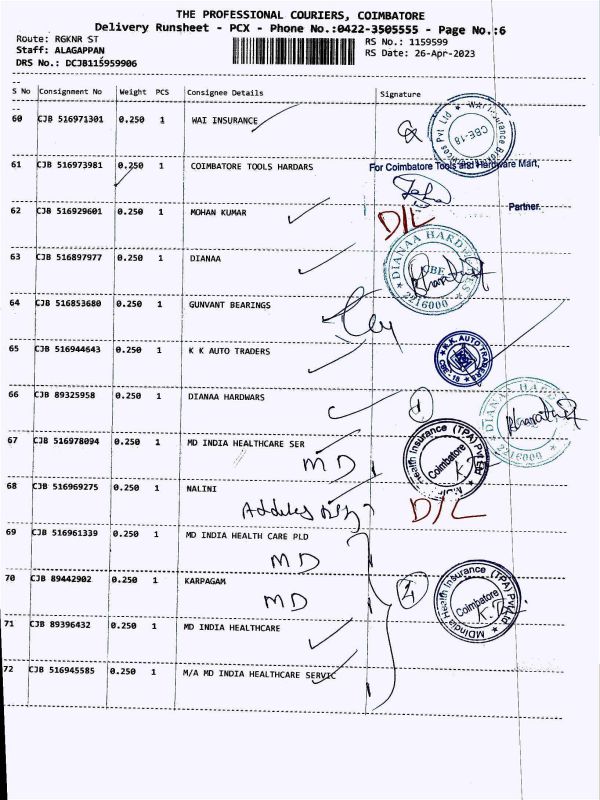 THE PROFESSIONAL COURIERS, COIMBATORE
Delivery Runsheet - PCX - Phone No.:0422-3505555 - Page No.:6
Route: RGKNR ST
RS No.: 1159599
Staff: ALAGAPPAN
RS Date: 26-Apr-2023
DRS No.: DCJB115959906
S No Consignment No Weight PCS Consignee Details Signature
60 CJB 516971301 0.250 1 WAI INSURANCE
CBE-18
61 CJB 516973981 0.250 1 COIMBATORE TOOLS HARDARS
For Coimbatore Tools and Hardware Mart,
Partner.
62 CJB 516929601 0.250 1 MOHAN KUMAR D/L
63 CJB 516897977 0.250 1 DIANAA
DIANAA HARDWARES
CBE
2216000
64 CJB 516853680 0.250 1 GUNVANT BEARINGS
65 CJB 516944643 0.250 1 K K AUTO TRADERS
K.K. AUTO TRADERS
CBE - 18
66 CJB 89325958 0.250 1 DIANAA HARDWARS
1
DIANAA HARD
2216000
67 CJB 516978094 0.250 1 MD INDIA HEALTHCARE SER
MD
Health Insurance (TPA) Pvt.Ltd
Coimbatore
68 CJB 516969275 0.250 1 NALINI
D/L
69 CJB 516961339 0.250 1 MD INDIA HEALTH CARE PLD
MD
70 CJB 89442902 0.250 1 KARPAGAM
MD
4
MDIndia Health Insurance (TPA) Pvt.Ltd
Coimbatore
71 CJB 89396432 0.250 1 MD INDIA HEALTHCARE
72 CJB 516945585 0.250 1 M/A MD INDIA HEALTHCARE SERVIC